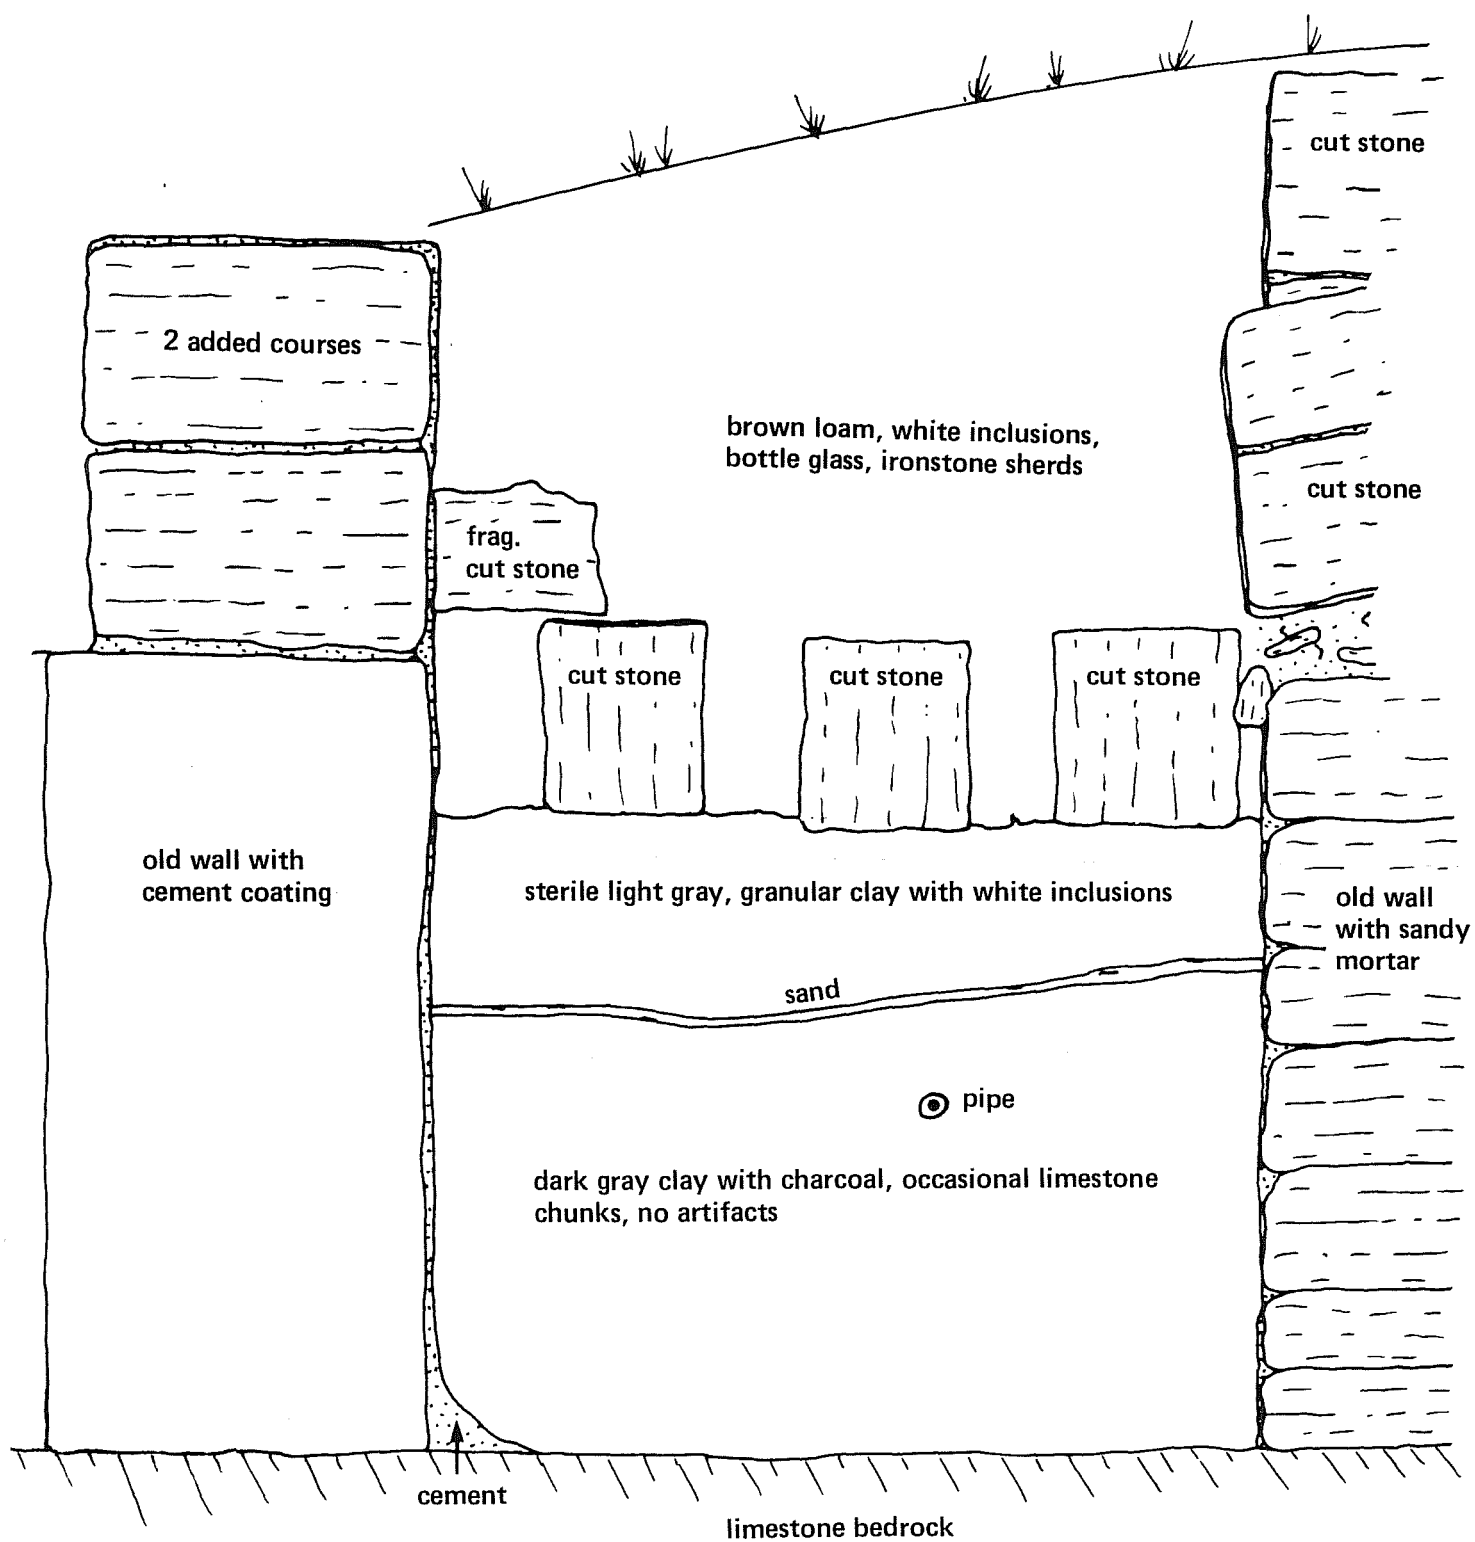 cut stone
2 added courses
brown loam, white inclusions,
bottle glass, ironstone sherds
cut stone
frag.
cut stone
cut stone
cut stone
cut stone
old wall with
cement coating
sterile light gray, granular clay with white inclusions
old wall
with sandy
mortar
sand
pipe
dark gray clay with charcoal, occasional limestone
chunks, no artifacts
cement
limestone bedrock